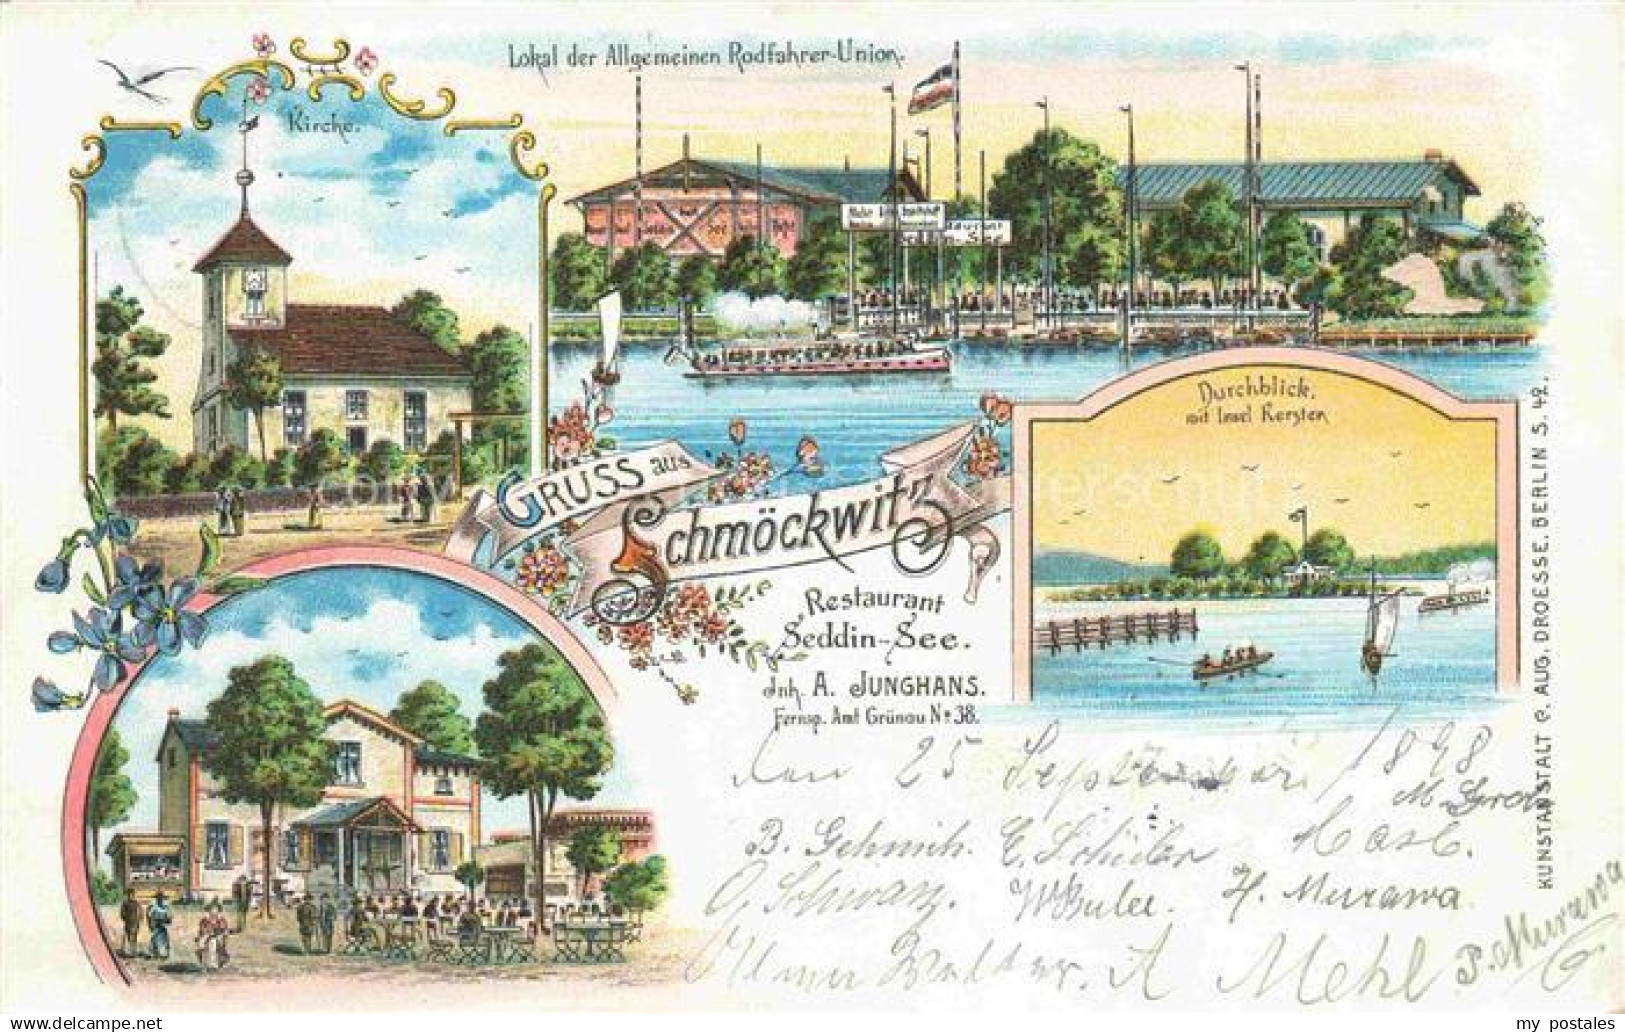 Lokal der Allgemeinen Radfahrer-Union.
Kirche.
Restaurant
Seddin-See
Durchblick.
mit Insel Kersten
GRUSS aus
Schmöckwitz
Restaurant
Seddin-See.
Jnh. A. JUNGHANS.
Fernsp. Amt Grünau No 38.
den 25 September 1898
B. Gehmich. E. Schüler
O. Schwarz. W Bulee. H. Murawa
Walter. A Mehl
P. Murawa
KUNSTANSTALT v. AUG. DROESSE, BERLIN S. 42.
my postales